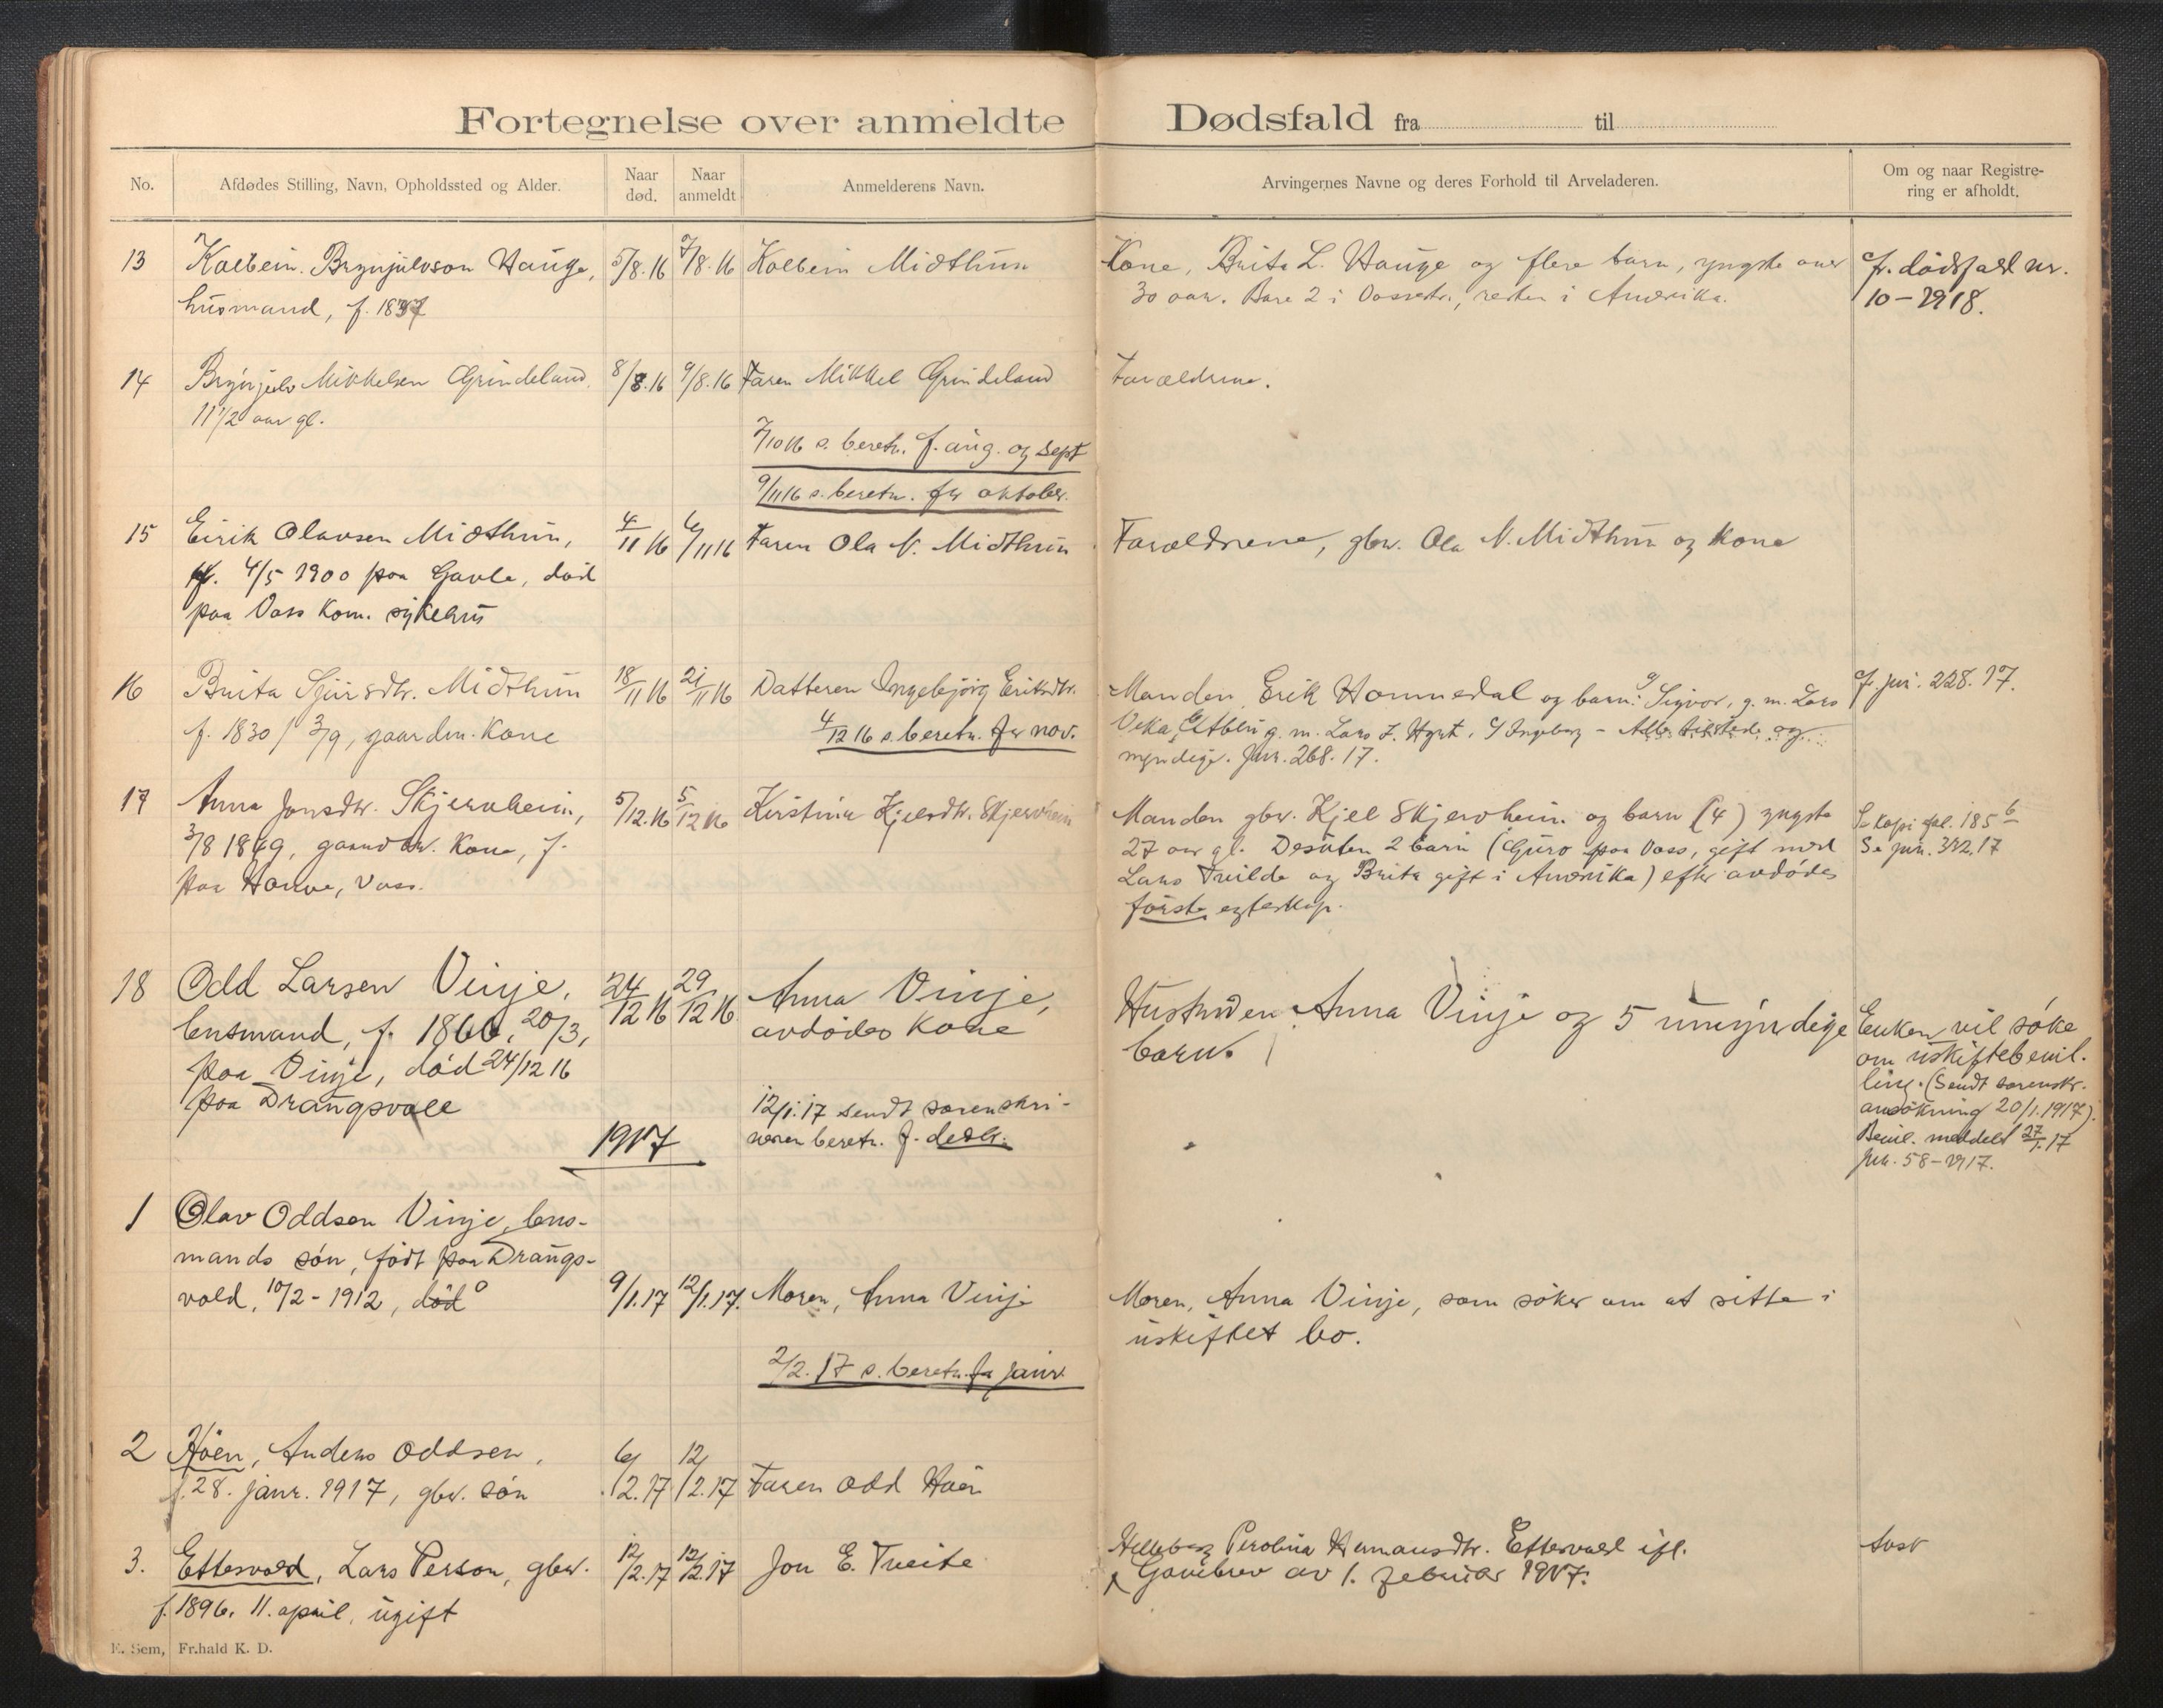 Fortegnelse over anmeldte Dødsfald fra til
No.
Afdødes Stilling, Navn, Opholdssted og Alder.
Naar død.
Naar anmeldt
Anmelderens Navn.
Arvingernes Navne og deres Forhold til Arveladeren.
Om og naar Registre-
ring er afholdt.
13 Kolbein Brynjulvson Hauge, 5/8.16 7/8.16 Kolbein Midthun
husmand, f. 1837
Kone, Brita L. Hauge og flere barn, yngste over
30 aar. Bare 2 i Vossestr., resten i Amerika.
cfr. dödsfald nr.
10 – 1918.
14 Brynjulv Mikkelsen Grindeland, 8/8.16 9/8.16 Faren Mikkel Grindeland
11 1/2 aar gl.
Forældrene.
7/10 16 s. beretn. f. aug. og sept
9/11 16 s. beretn. for oktober.
15 Eirik Olavsen Midthun, 4/11 16 6/11 16 Faren Ola N. Midthun
f. 4/5 1900 paa Gavle, död
paa Voss kom. sykehus
Forældrene, gbr. Ola N. Midthun og kone
16 Brita Sjursdtr. Midthun 18/11 16 21/11 16 Datteren Ingebjörg Eriksdtr.
f. 1830 3/9, gaardm. kone
4/12 16 s. beretn. for nov.
Manden Erik Hommedal og barn: Sigvor, g. m. Lars
g. m. Lars Ingeborg – Alle tilstede og
myndige. Jur. 268. 17.
cfr. jur. 228. 17.
17 Anna Jonsdtr. Skjervheim, 5/12.16 5/12 16 Kirstina Kjelsdtr. Skjervheim
3/8 1849, gaardbr. kone, f.
paa Honve, Voss.
Manden gbr. Kjel Skjervheim og barn (4) yngste
27 aar gl. Desuten 2 barn (Guro paa Voss, gift med
Lars Tvilde og Brita gift i Amerika) efter avdödes
förste egteskap.
Se kopi fol. 185 b
Se jur. 392.17
18 Odd Larsen Vinje, 24/12 16 29/12 16 Anna Vinje,
lensmand, f. 1860, 20/3, avdödes kone
paa Vinje, död 24/12 16
paa Drangsvoll
Hustruen Anna Vinje og 5 umyndige
barn.
Enken vil söke
om uskiftebevil-
ling. (Sendt sorenskr.
ansökning 20/1.1917).
Bevil. meddelt 27/1.17
jur. 58 – 1917.
12/1.17 sendt sorenskri-
veren beretn. f. desbr.
1917
1 Olav Oddsen Vinje, lens-
mands sön, födt paa Drangs-
vold, 10/2 – 1912, död 9/1.17 12/1.17. Moren, Anna Vinje
Moren, Anna Vinje, som söker om at sitte i
uskiftet bo.
2/2.17 s. beretn. for janr.
2 Höen, Anders Oddsen, 6/2.17 12/2.17 Faren Odd Höen
f. 28. janr. 1917, gbr. sön
3. Ettesvold, Lars Person, gbr. 12/2.17 12/2.17 Jon E. Tveite
f. 1896. 11. april, ugift
Hermansdtr. Ettesvold ifl.
Gavebrev av 1. februar 1917.
E. Sem, Fr.hald K. D.